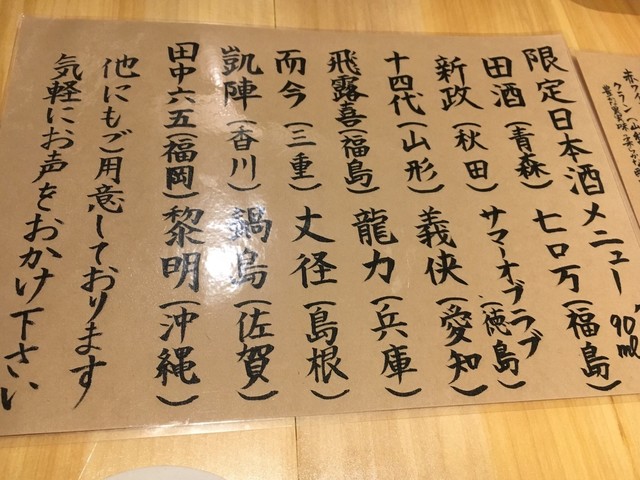 限定日本酒メニュー 90ml
田酒(青森) 七ロ万(福島)
新政(秋田) サマーオブラブ(徳島)
十四代(山形) 義侠(愛知)
飛露喜(福島) 龍力(兵庫)
而今(三重) 丈径(島根)
凱陣(香川) 鍋島(佐賀)
田中六五(福岡) 黎明(沖縄)
他にもご用意しております
気軽にお声をおかけ下さい
赤ワイン